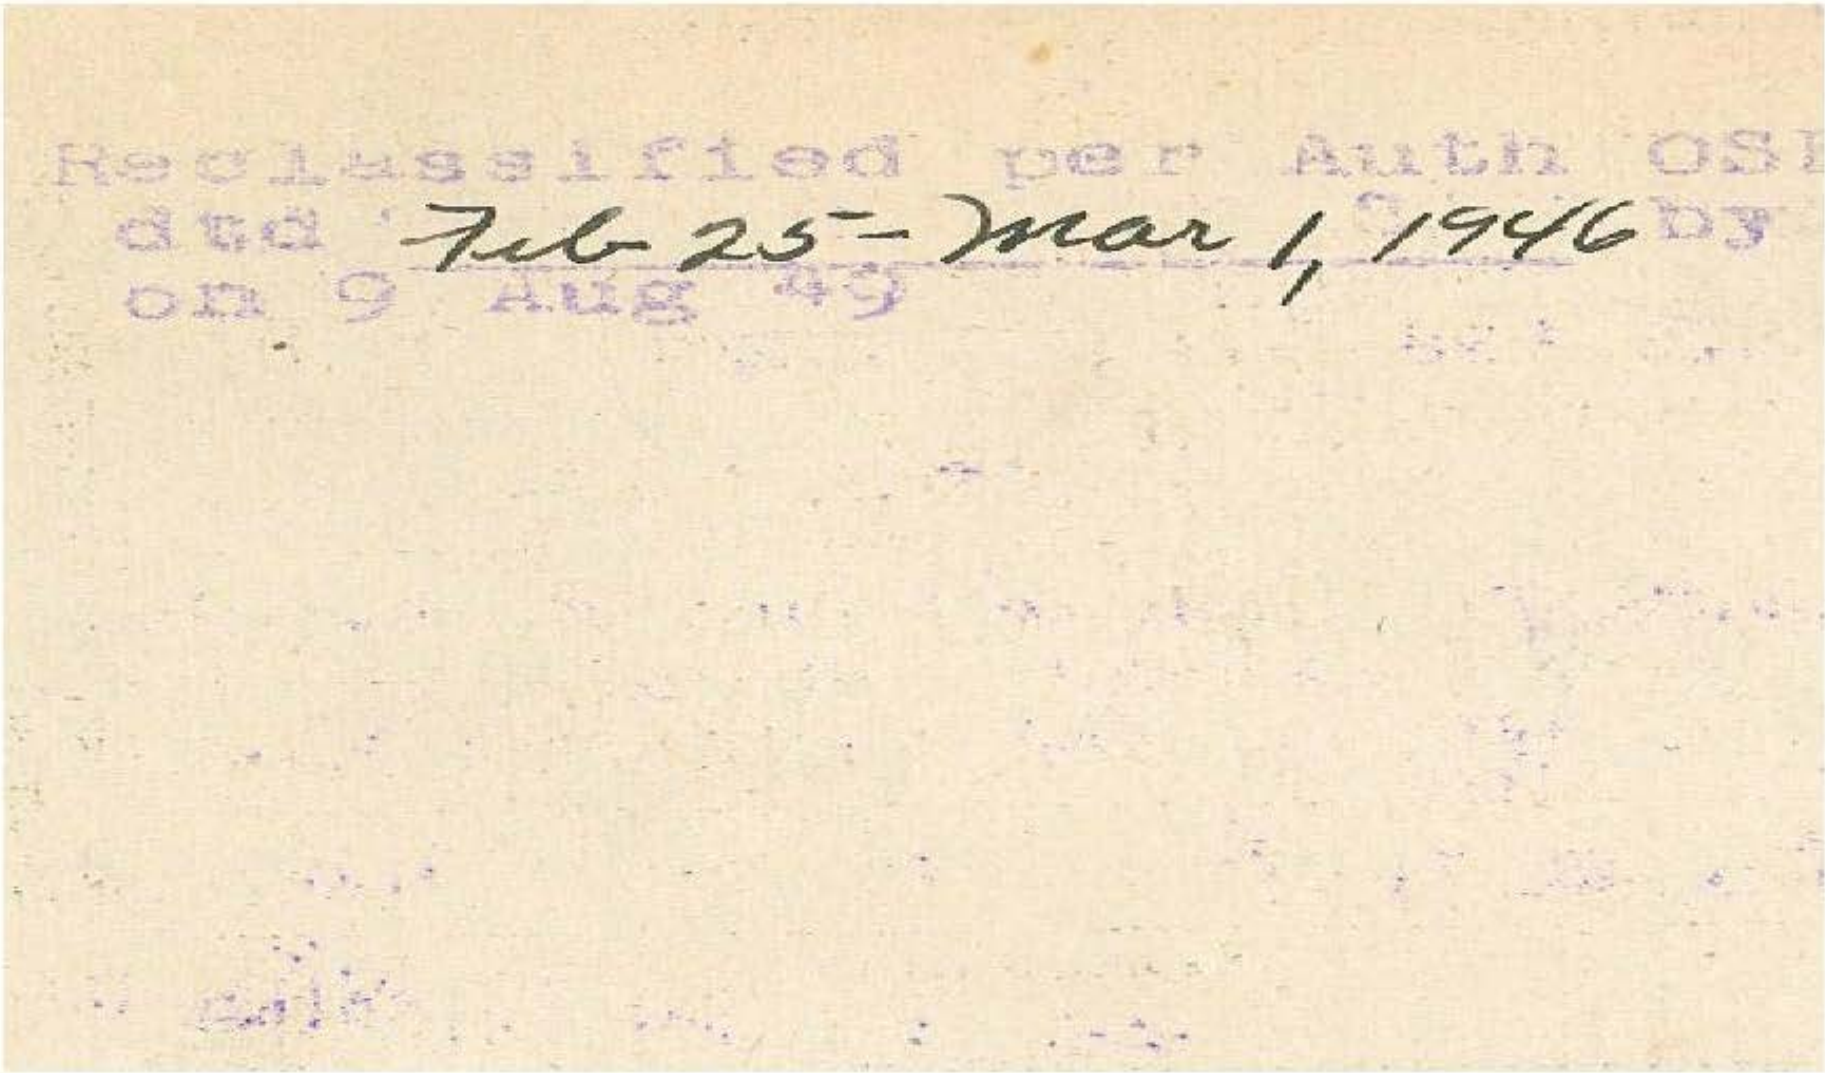 Reclassified per Auth OS
dtd Feb 25 - Mar 1, 1946 by
on 9 Aug 49